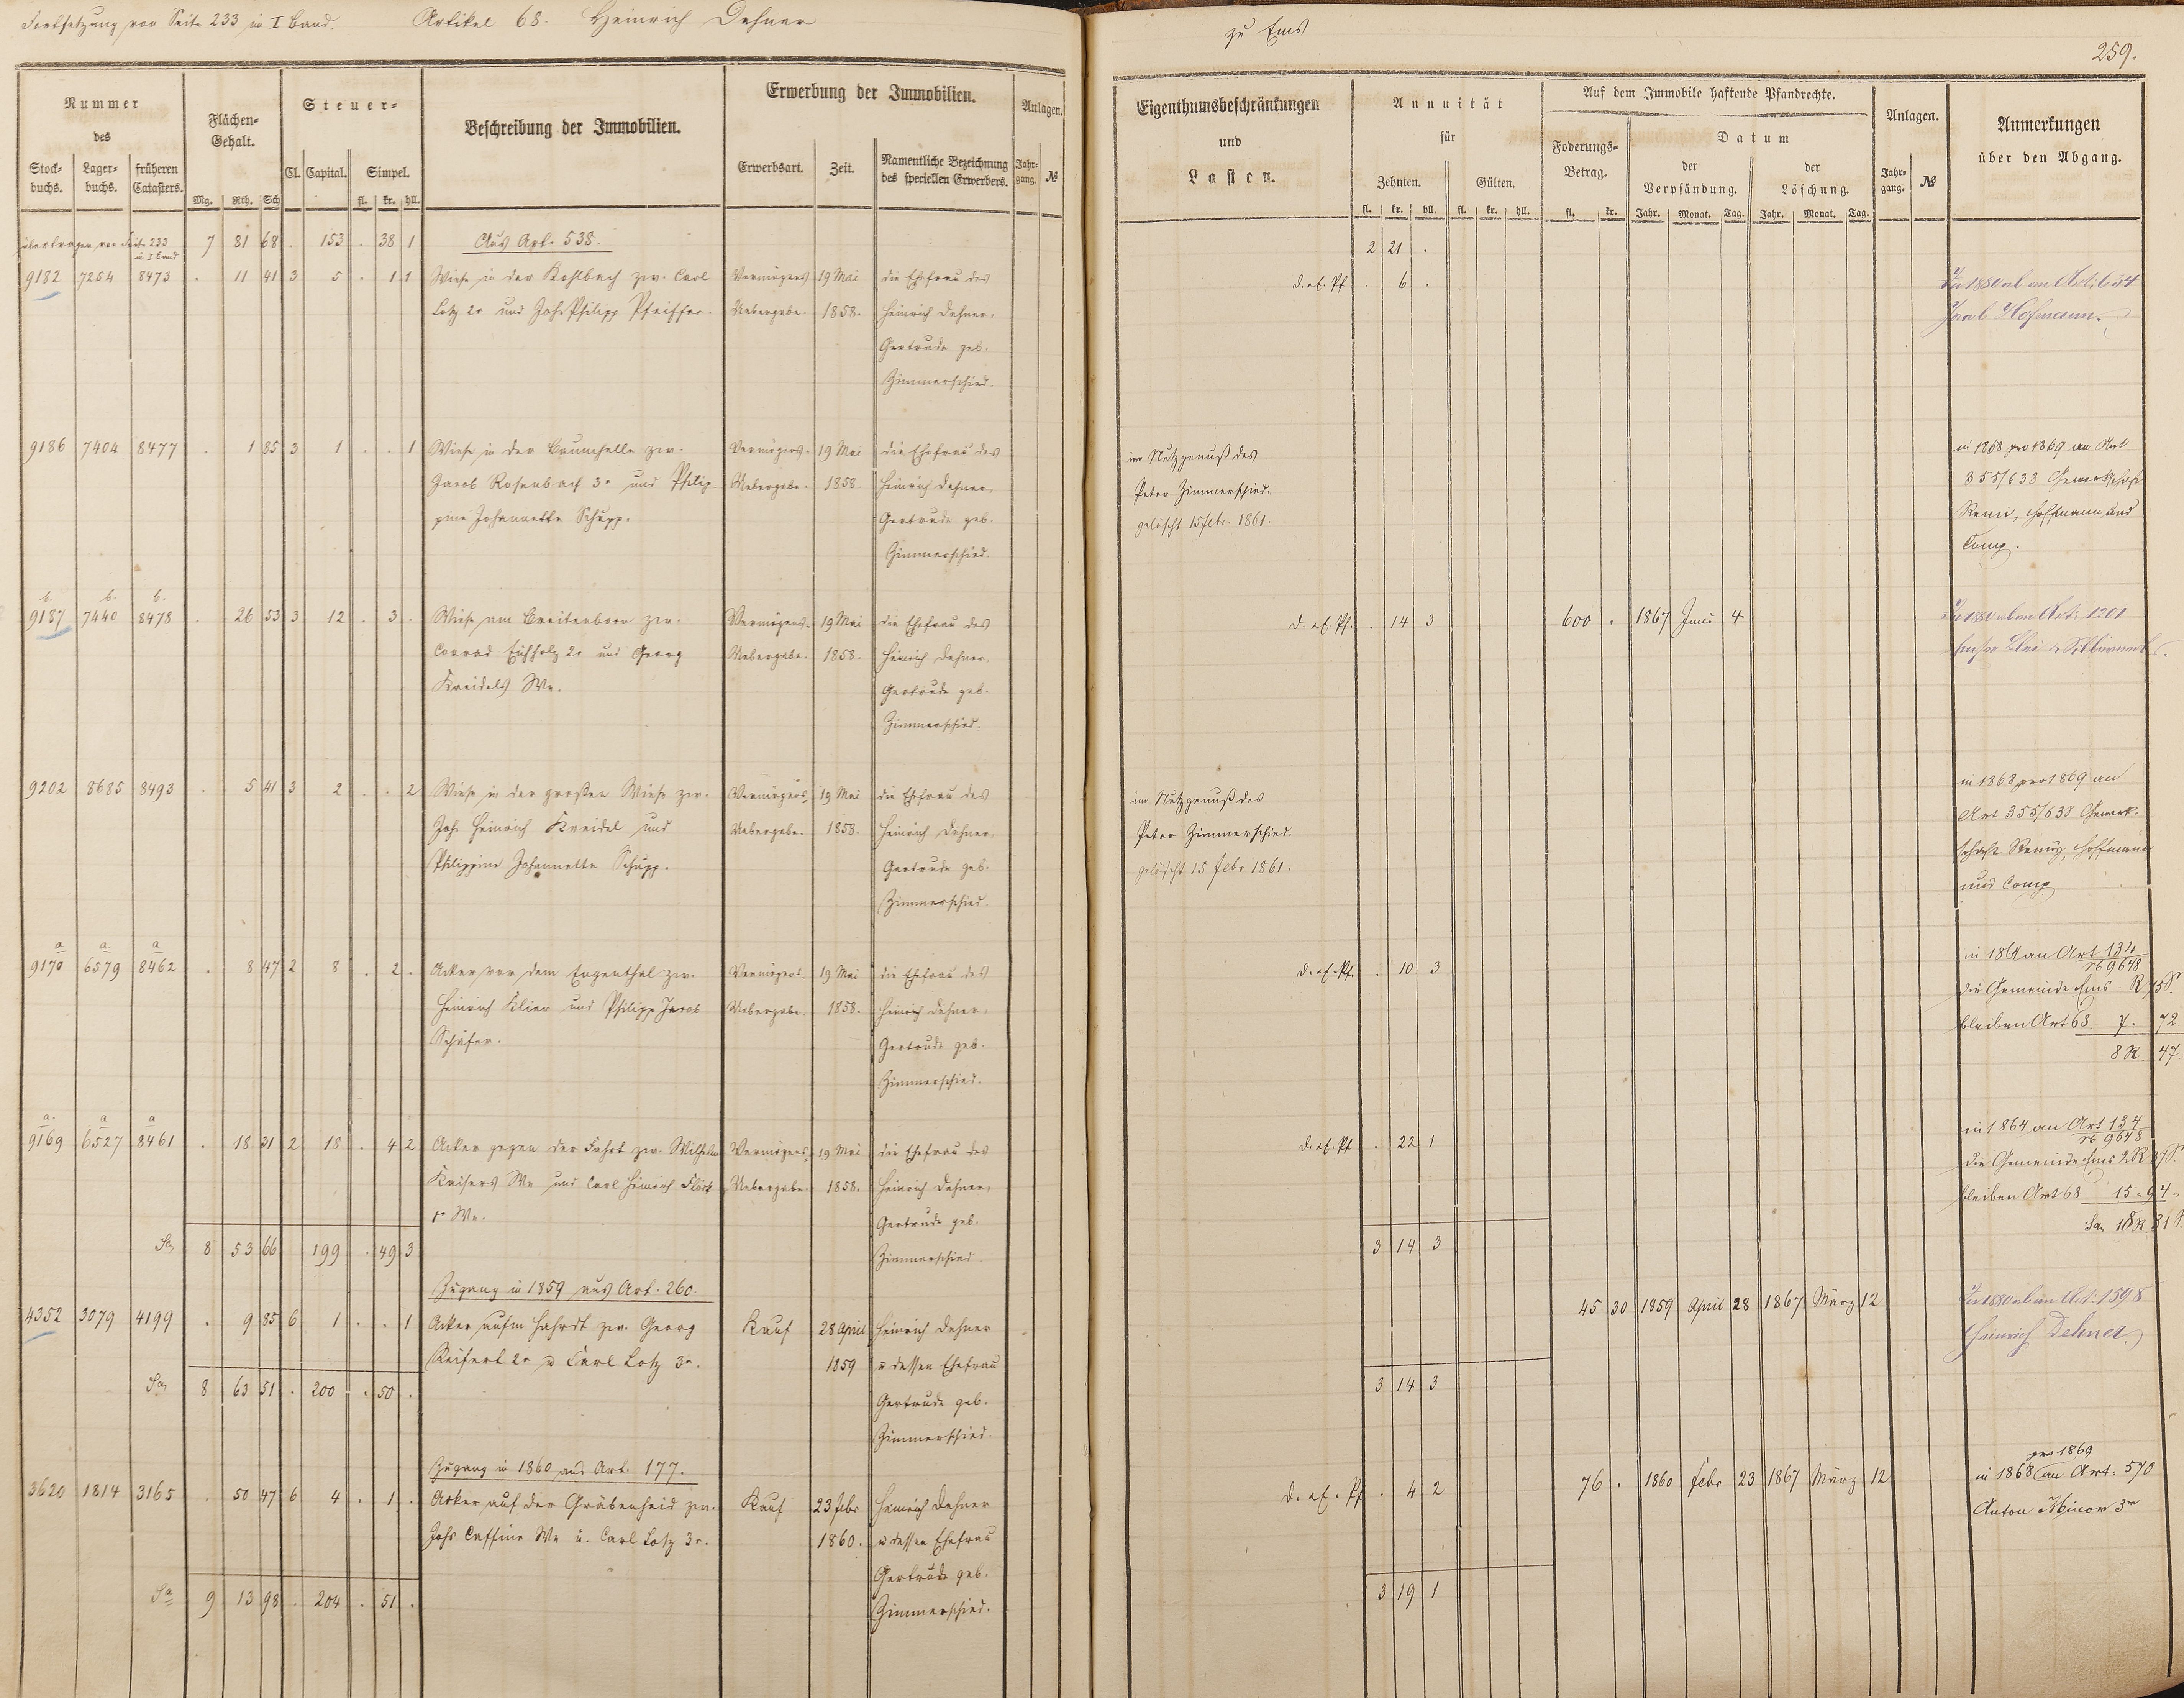 Fortsetzung von Seite 233 in I Band. Artikel 68. Heinrich Dehner
zu Ems
259.
Nummer
des
Stock-
buchs.
Lager-
buchs.
früheren
Catasters.
Flächen-
Gehalt.
Mg. Rth. Sch
Steuer-
Cl. Capital. Simpel.
fl. kr. hll.
Beschreibung der Immobilien.
Erwerbung der Immobilien.
Erwerbsart. Zeit.
Namentliche Bezeichnung
des speciellen Erwerbers.
Anlagen.
Jahr-
gang. №
Eigenthumsbeschränkungen
und
Lasten.
Annuität
für
Zehnten. Gülten.
fl. kr. hll. fl. kr. hll.
Auf dem Immobile haftende Pfandrechte.
Foderungs-
Betrag.
fl. kr.
Datum
der
Verpfändung.
der
Löschung.
Jahr. Monat. Tag. Jahr. Monat. Tag.
Anlagen.
Jahr-
gang. №
Anmerkungen
über den Abgang.
übertragen von Seite 233 7 81 68 . 153 . 38 1 Aus Art. 538. 2 21 .
in I Band
9182 7254 8473 . 11 41 3 5 . 1 1 Wiese in der Kohlbach zw. Carl Vermögens 19 Mai die Ehefrau des d. ef. Pf . 6 . In 1880 ab an Art: 634
Lotz 2r und Johs Philipp Pfeiffer. Uebergabe. 1858. Heinrich Dehner, Jacob Hofmann.
Gertrude geb.
Zimmerschied.
9186 7404 8477 . 1 85 3 1 . . 1 Wiese in der Baumhelle zw. Vermögens- 19 Mai die Ehefrau des im Nutzgenuß des in 1868 pro 1869 an Art
Jacob Rosenbach 3r und Philip- Uebergabe. 1858. Heinrich Dehner, Peter Zimmerschied. 355/633 Gewerkschaft
pine Johannette Schupp. Gertrude geb. gelöscht 15 febr. 1861. Remi, Hoffmann und
Zimmerschied. Comp.
b. b. b.
9187 7440 8478 . 26 53 3 12 . 3 . Wiese am Breitenborn zw. Vermögens- 19 Mai die Ehefrau des d. ef. Pf. . 14 3 600 . 1867 Juni 4 In 1880 ab an Art: 1201
Conrad Eichholz 2r und Georg Uebergabe. 1858. Heinrich Dehner, Emser Blei u Silberwerk
Kreidels We. Gertrude geb.
Zimmerschied.
9202 8685 8493 . 5 41 3 2 . . 2 Wiese in der großen Wiese zw. Vermögens- 19 Mai die Ehefrau des im Nutzgenuß des in 1868 pro 1869 an
Johs Heinrich Kreidel und Uebergabe. 1858. Heinrich Dehner, Peter Zimmerschied. Art 355/633 Gewerk-
Philippine Johannette Schupp. Gertrude geb. gelöscht 15 febr 1861. schaft Remy, Hoffmann
Zimmerschied. und Comp
a a a
9170 6579 8462 . 8 47 2 8 . 2 . Acker vor dem Engenthal zw. Vermögens- 19 Mai die Ehefrau des d. ef. Pf. . 10 3 in 1864 an Art 134
rb 9648
Heinrich Klier und Philipp Jacob Uebergabe. 1858. Heinrich Dehner, die Gemeinde Ems R 75 S.
Schäfer. Gertrude geb. bleiben Art 68. 7. 72
Zimmerschied. 8 R 47
a. a a
9169 6527 8461 . 18 31 2 18 . 4 2 Acker gegen der Fahrt zw. Wilhelm Vermögens- 19 Mai die Ehefrau des d. ef. Pf . 22 1 in 1864 an Art 134
rb 9648
Kaisers We und Carl Heinrich Flöck Uebergabe. 1858. Heinrich Dehner, die Gemeinde Ems 2 R 37 S
1r We. Gertrude geb. bleiben Art 68 15 . 94 .
Sa 8 53 66 199 . 49 3 Zimmerschied 3 14 3 Sa 18 R 31 S.
Zugang in 1859 aus Art. 260.
4352 3079 4199 . 9 85 6 1 . . 1 Acker aufm Hahrdt zw. Georg Kauf 28 April Heinrich Dehner 45 30 1859 April 28 1867 März 12 In 1880 ab an Art: 1598
Reifert 2r u Carl Lotz 3r. 1859 u dessen Ehefrau Heinrich Dehner
Sa 8 63 51 . 200 . 50 . Gertrude geb. 3 14 3
Zimmerschied.
Zugang in 1860 aus Art. 177.
3620 1814 3165 . 50 47 6 4 . 1 . Acker auf der Gräbenheid zw. Kauf 23 febr Heinrich Dehner d. ef. Pf . 4 2 76 . 1860 febr 23 1867 März 12 in 1868 pro 1869 an Art. 570
Johs Caffine We u. Carl Lotz 3r. 1860. u dessen Ehefrau Anton Minor 3r
Gertrude geb.
Sa 9 13 98 . 204 . 51 . Zimmerschied. 3 19 1